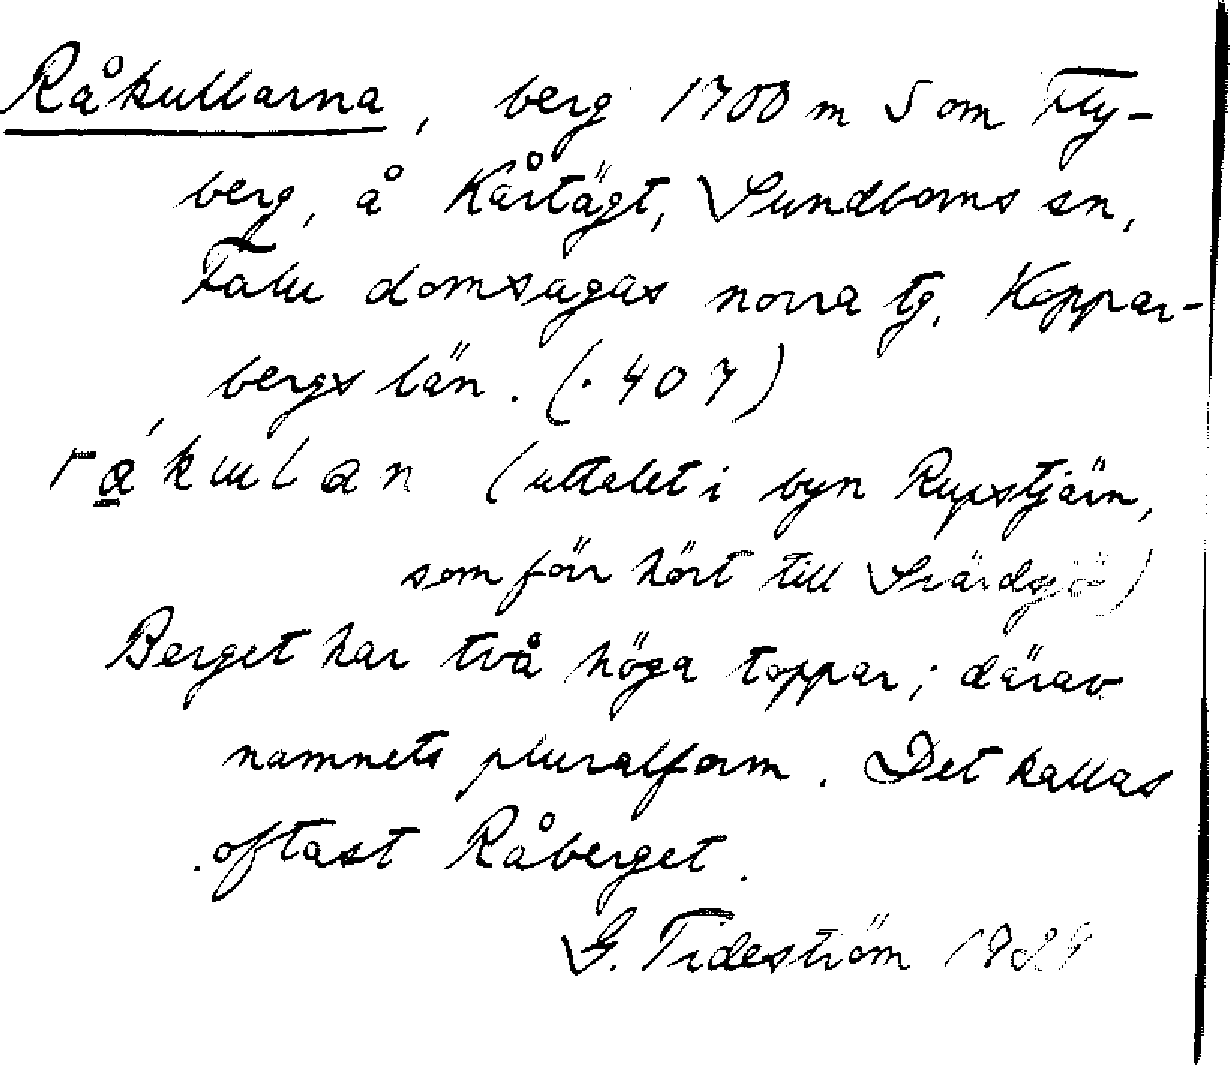 Råkullarna, berg 1700 m S om Fly-
berg, å Kårtägt, Sundborns sn,
Falu domsagas norra tg, Koppar-
bergs län. (.407)
råkulan (uttalet i byn Rupstjärn,
som förr hört till Svärdsjö)
Berget har två höga toppar; därav
namnets pluralform. Det kallas
oftast Råberget.
G. Tideström 1929